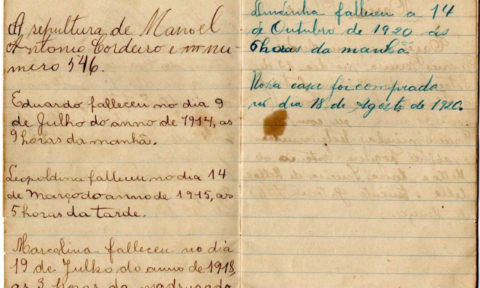 A sepultura de Manoel
Antonio Cordeiro é no nu-
mero 546.
Eduardo falleceu no dia 9
de Julho do anno de 1914, as
9 horas da manhã.
Leopoldina falleceu no dia 14
de Março do anno de 1915, as
5 horas da tarde.
Marcolina falleceu no dia
19 de Julho do anno de 1918,
as 3 horas da madrugada
falleceu a 14
de Outubro de 1920 ás
6 horas da manhã
Nossa casa foi comprada
no dia 18 de Agosto de 1920.